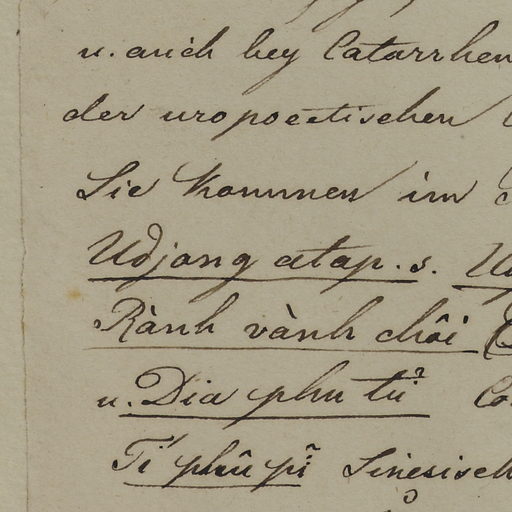 u. auch bey Catarrhen
der uropoetischen
Sie kommen im
Udjang atap. s.
Rành vành chôi
u. Dia phu tử
Ti phû pĩ Sinesisch